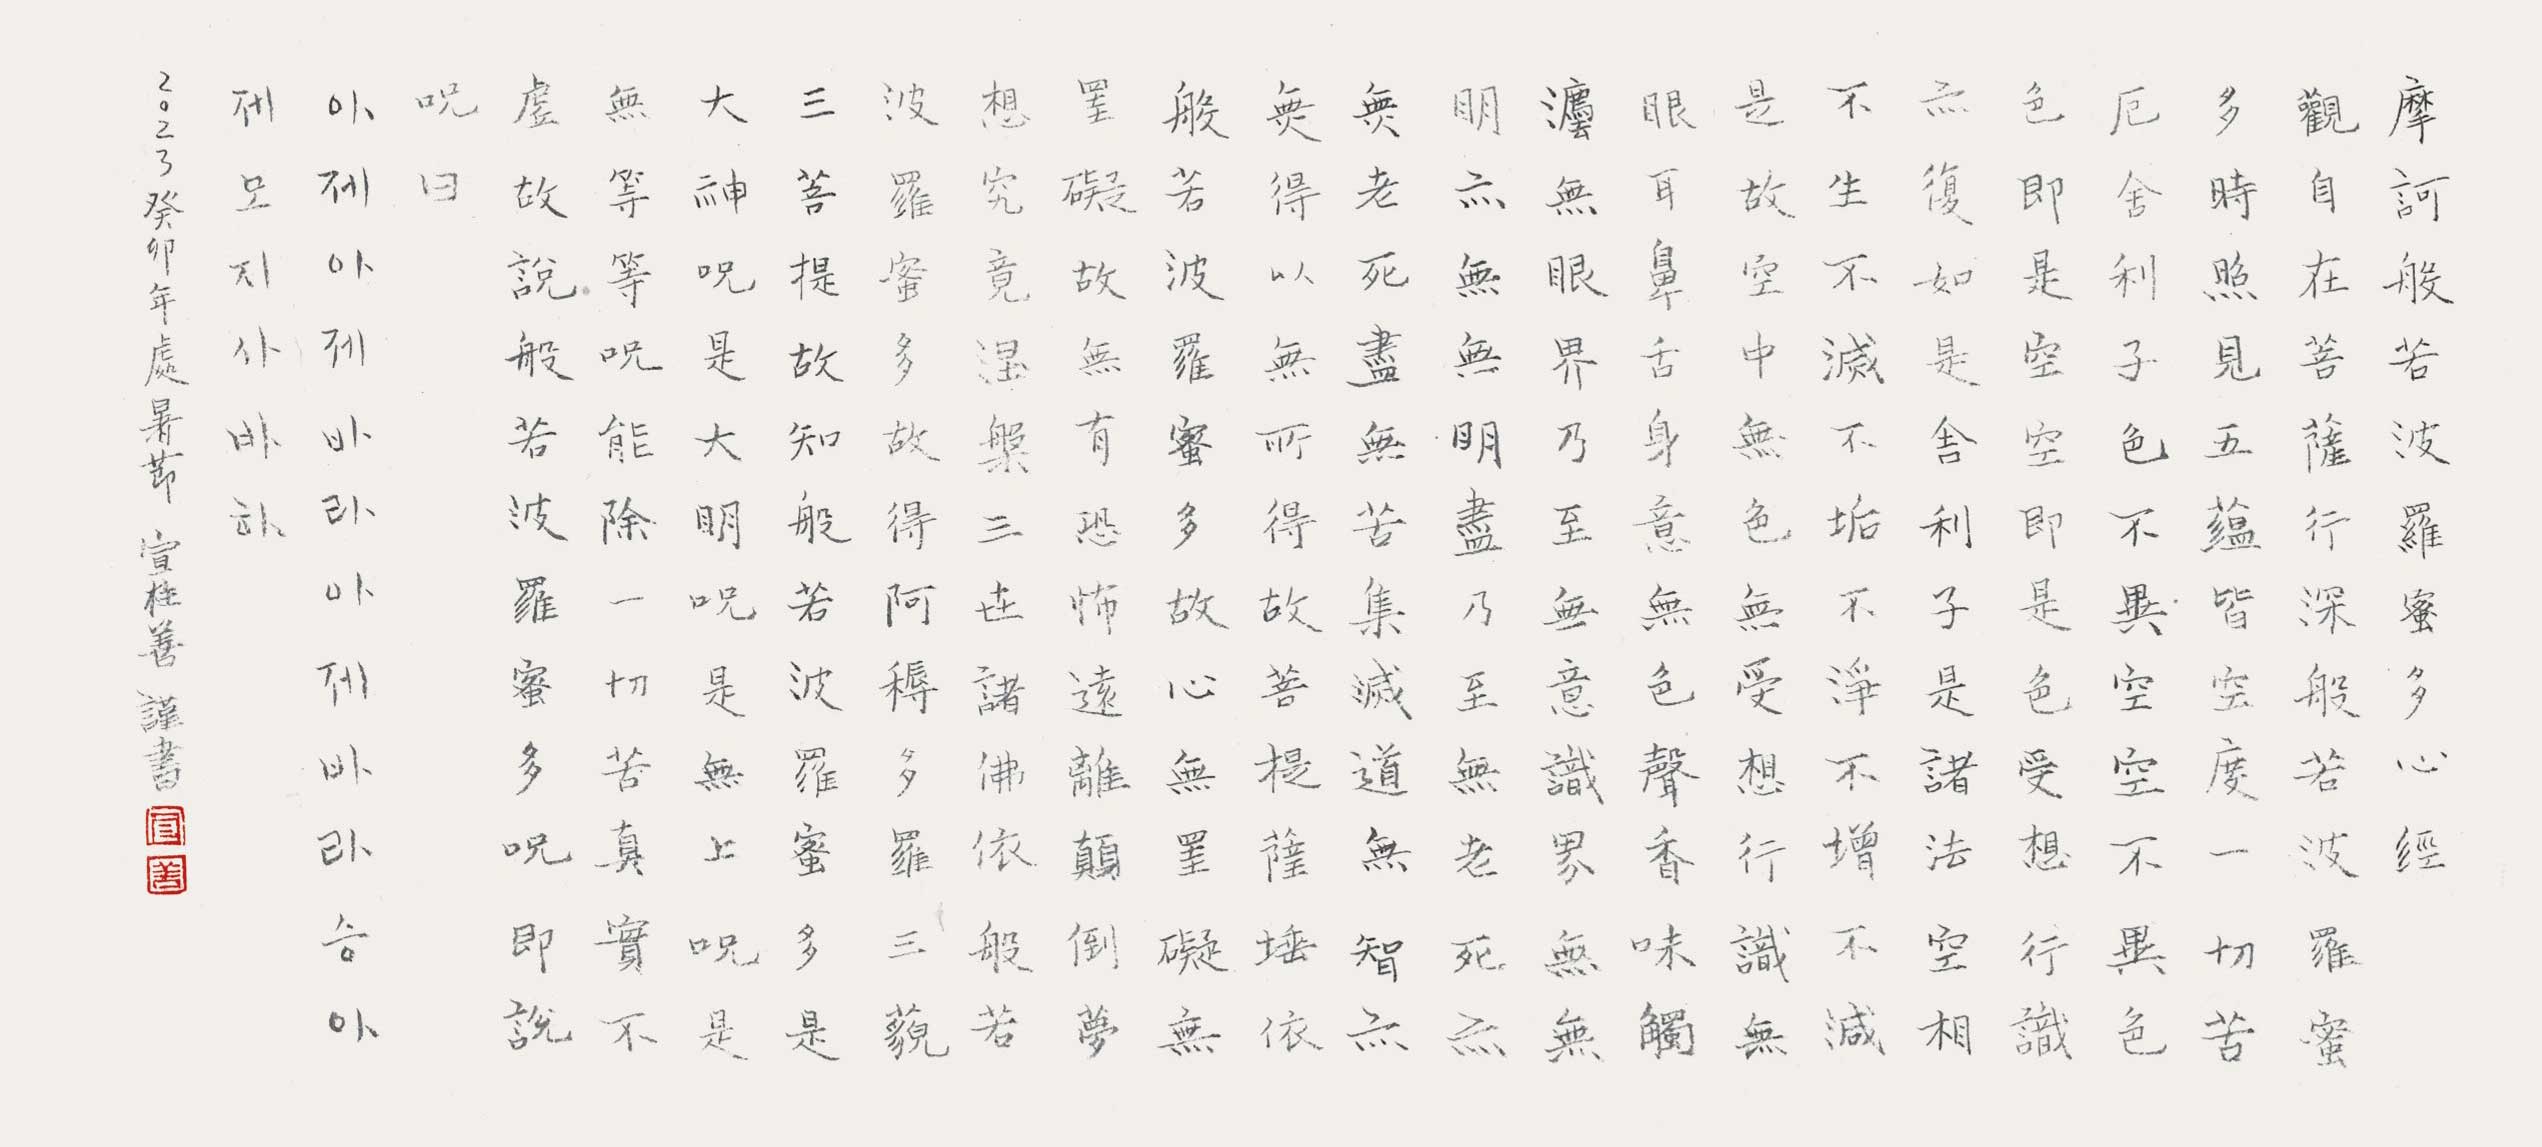 摩訶般若波羅蜜多心經
觀自在菩薩行深般若波羅蜜
多時照見五蘊皆空度一切苦
厄舍利子色不異空空不異色
色即是空空即是色受想行識
亦復如是舍利子是諸法空相
不生不滅不垢不淨不增不減
是故空中無色無受想行識無
眼耳鼻舌身意無色聲香味觸
灋無眼界乃至無意識界無無
明亦無無明盡乃至無老死亦
無老死盡無苦集滅道無智亦
無得以無所得故菩提薩埵依
般若波羅蜜多故心無罣礙無
罣礙故無有恐怖遠離顛倒夢
想究竟涅槃三世諸佛依般若
波羅蜜多故得阿耨多羅三藐
三菩提故知般若波羅蜜多是
大神呪是大明呪是無上呪是
無等等呪能除一切苦真實不
虛故說般若波羅蜜多呪即說
呪曰
아제아제바라아제바라승아
제모지사바하
2023癸卯年處暑節 宣柱善 謹書
宣
善